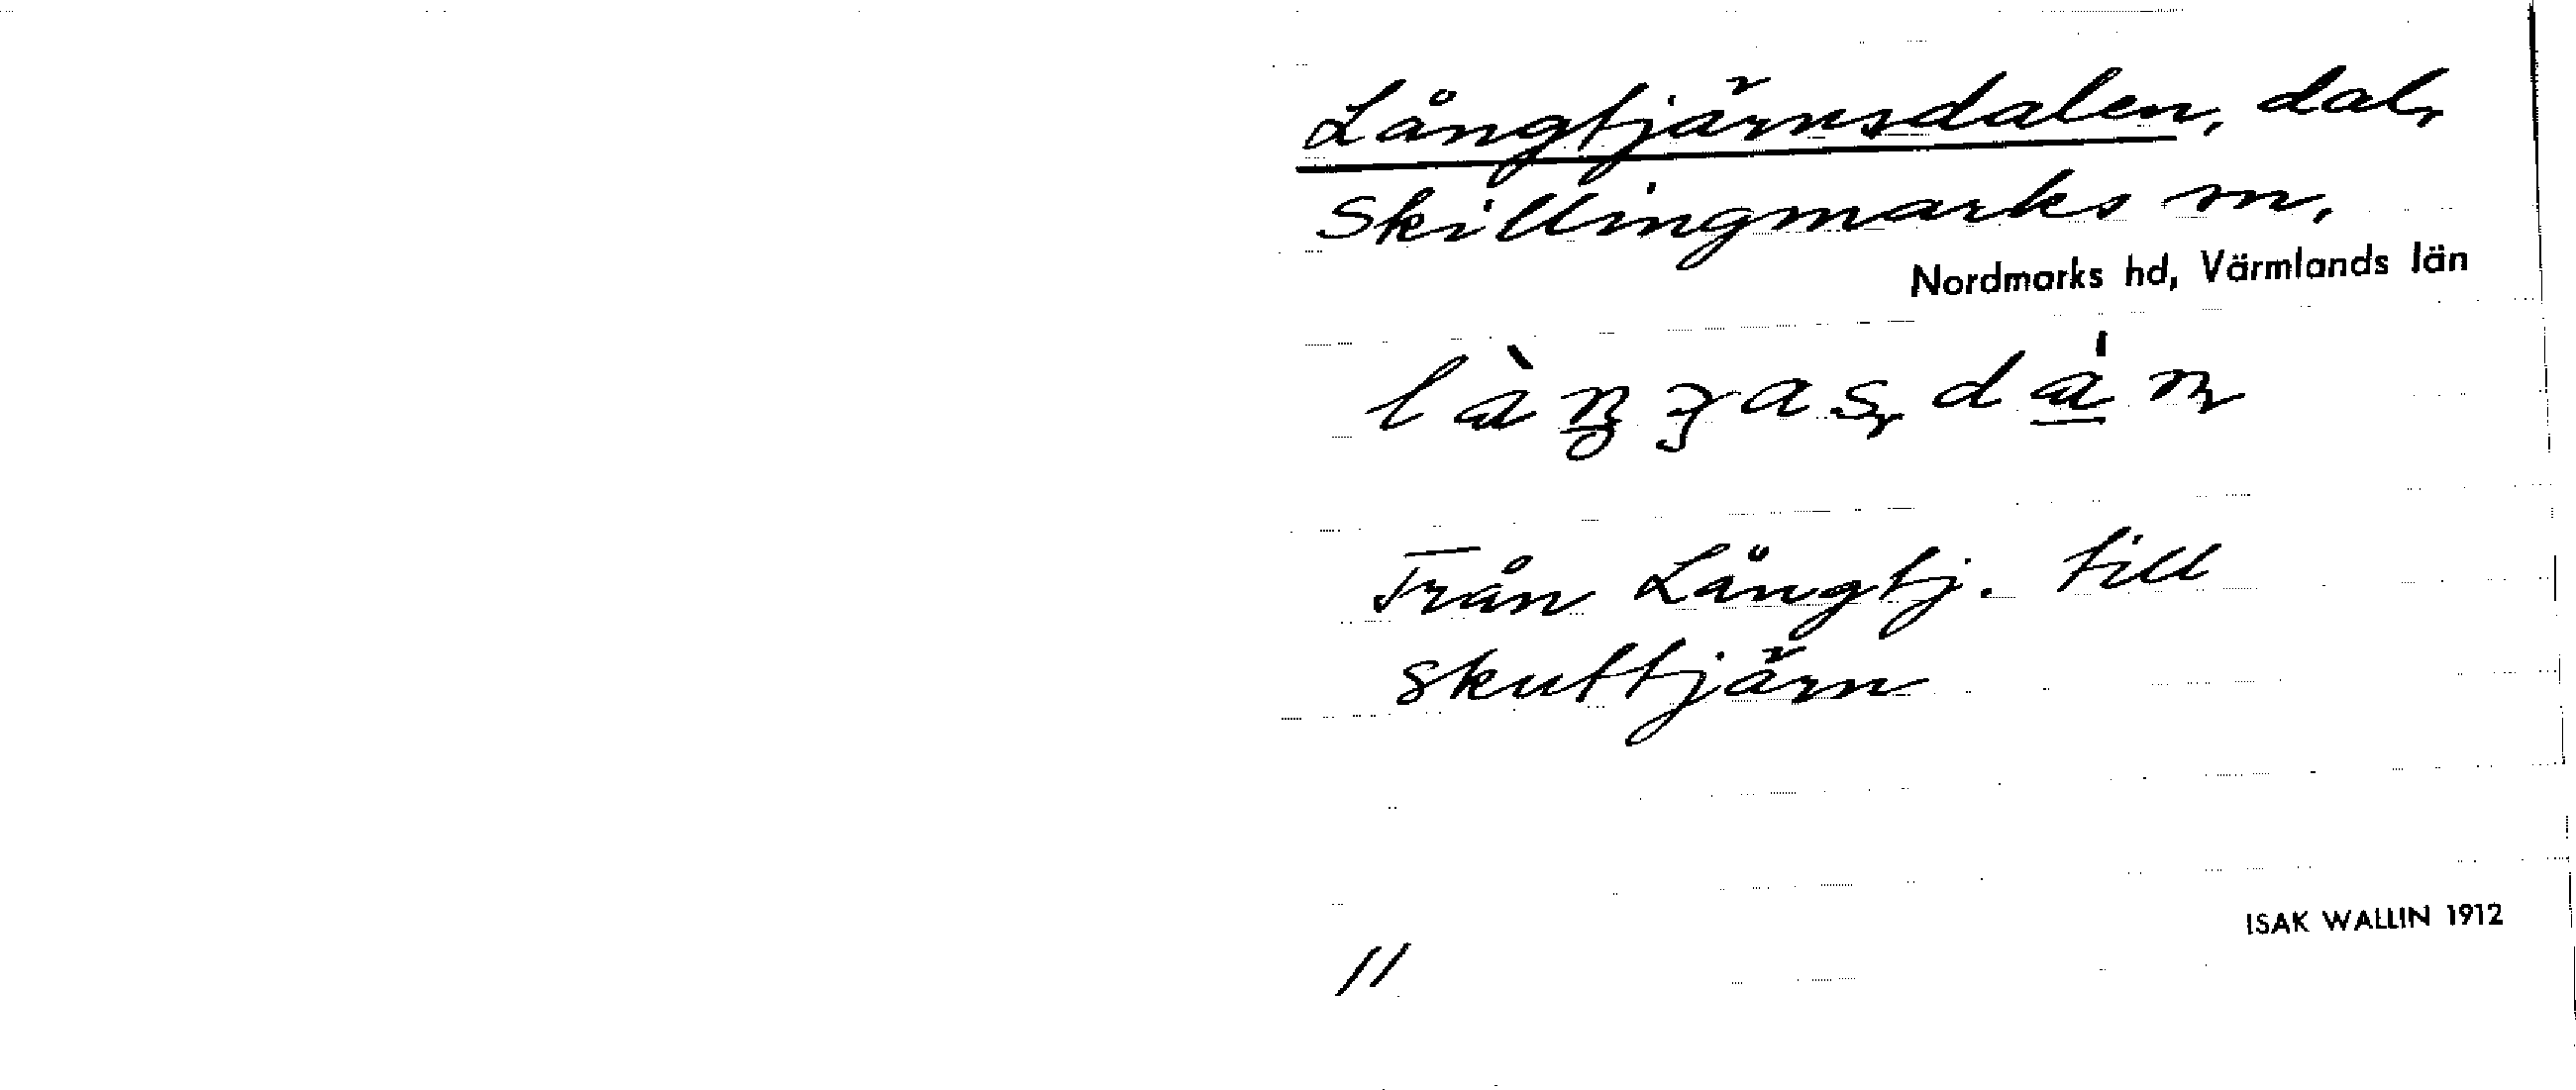 Långtjärnsdalen, dal,
Skillingmarks sn,
Nordmarks hd, Värmlands län
Från Långtj. till
skuttjärn
ISAK WALLIN 1912
11